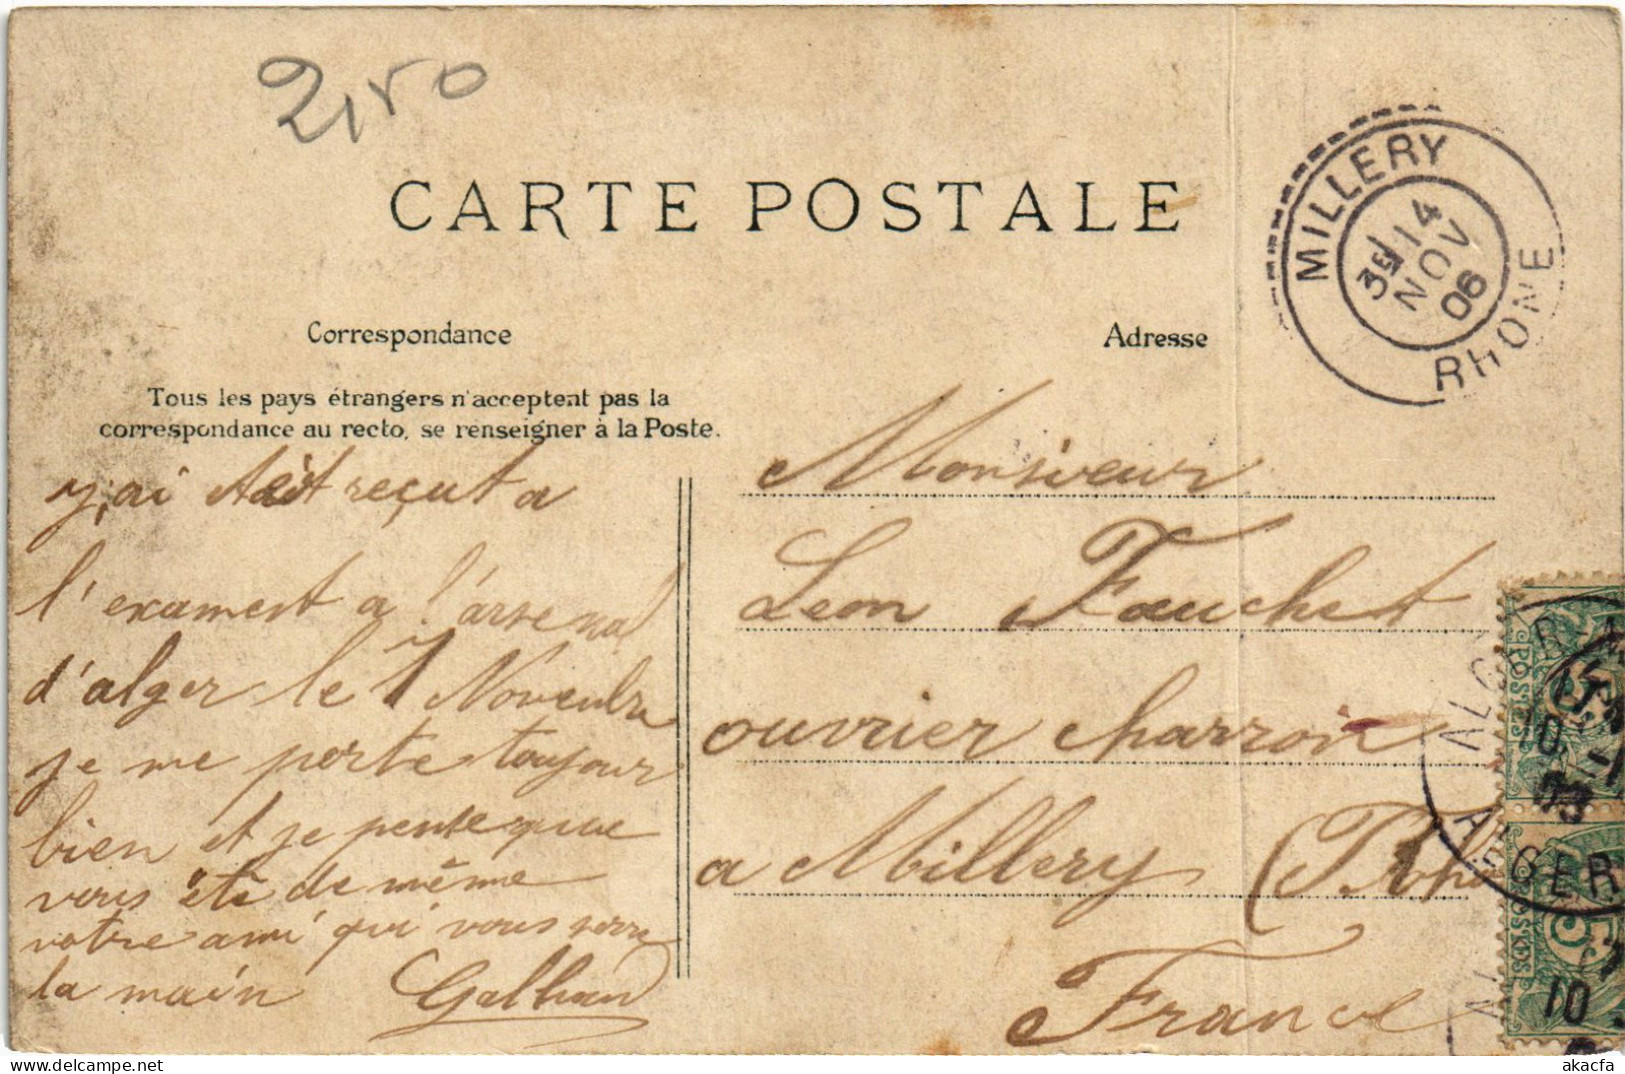 2,50
CARTE POSTALE
MILLERY
3E 14
NOV
06
RHONE
Correspondance
Adresse
Tous les pays étrangers n'acceptent pas la
correspondance au recto, se renseigner à la Poste.
y,ai reçut a
l'exament a l'arsenal
d'alger le 7 Novenbre
je me porte toujour
bien et je pense que
vous ète de même
votre ami qui vous serre
la main Galhan
Monsieur
Leon Fauchet
ouvrier charron
a Millery (Rhône
France
POSTES
5
ALGER
10
ALGER
10
akacfa